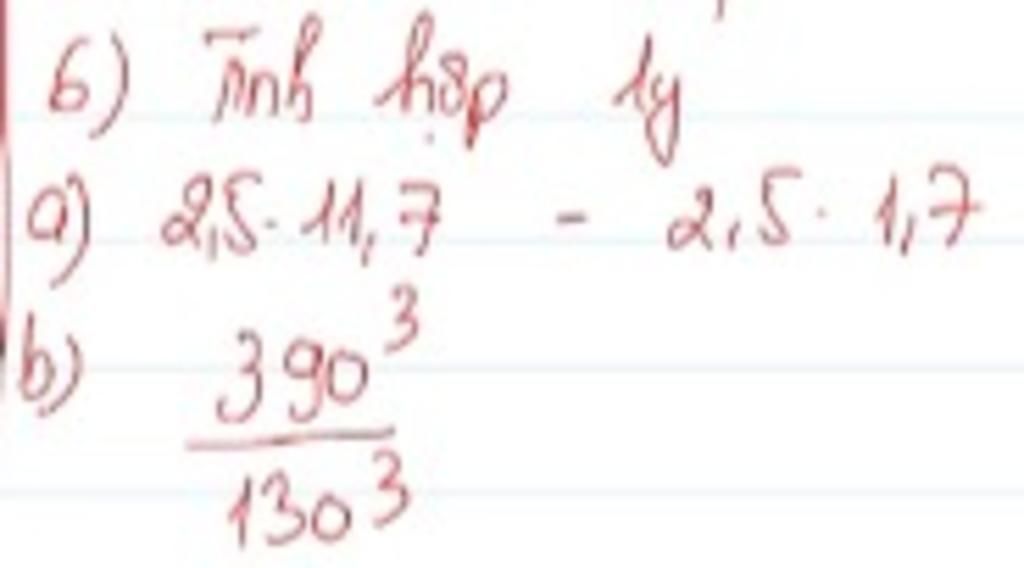 6) Tính hợp lý
a) 2,5 . 11,7 - 2,5 . 1,7
b) 390³
130³